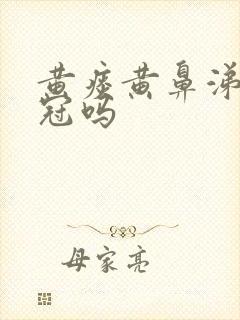 黄痰黄鼻涕
冠吗
母家亮